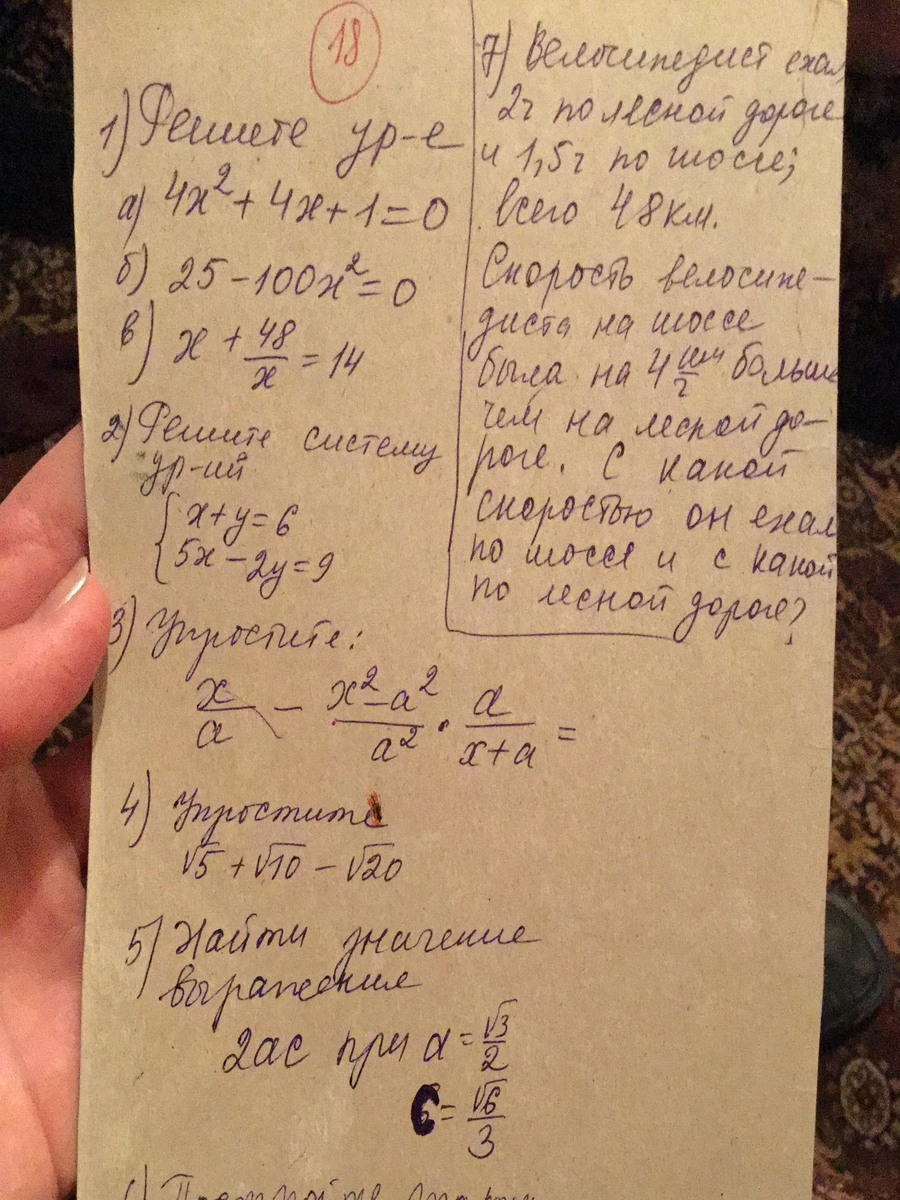 18
1) Решите ур-е
а) 4x² + 4x + 1 = 0
б) 25 - 100x² = 0
в) x + 48/x = 14
2) Решите систему
ур-ий
{ x + y = 6
5x - 2y = 9
3) Упростите:
x/a - (x² - a²)/a² · a/(x + a) =
4) Упростите
√5 + √10 - √20
5) Найти значение
выражения
2ac при a = √3/2
c = √6/3
7) Велосипедист ехал
2ч по лесной дороге
и 1,5ч по шоссе;
всего 48км.
Скорость велосипе-
диста на шоссе
была на 4 км/ч больше
чем на лесной до-
роге. С какой
скоростью он ехал
по шоссе и с какой
по лесной дороге?